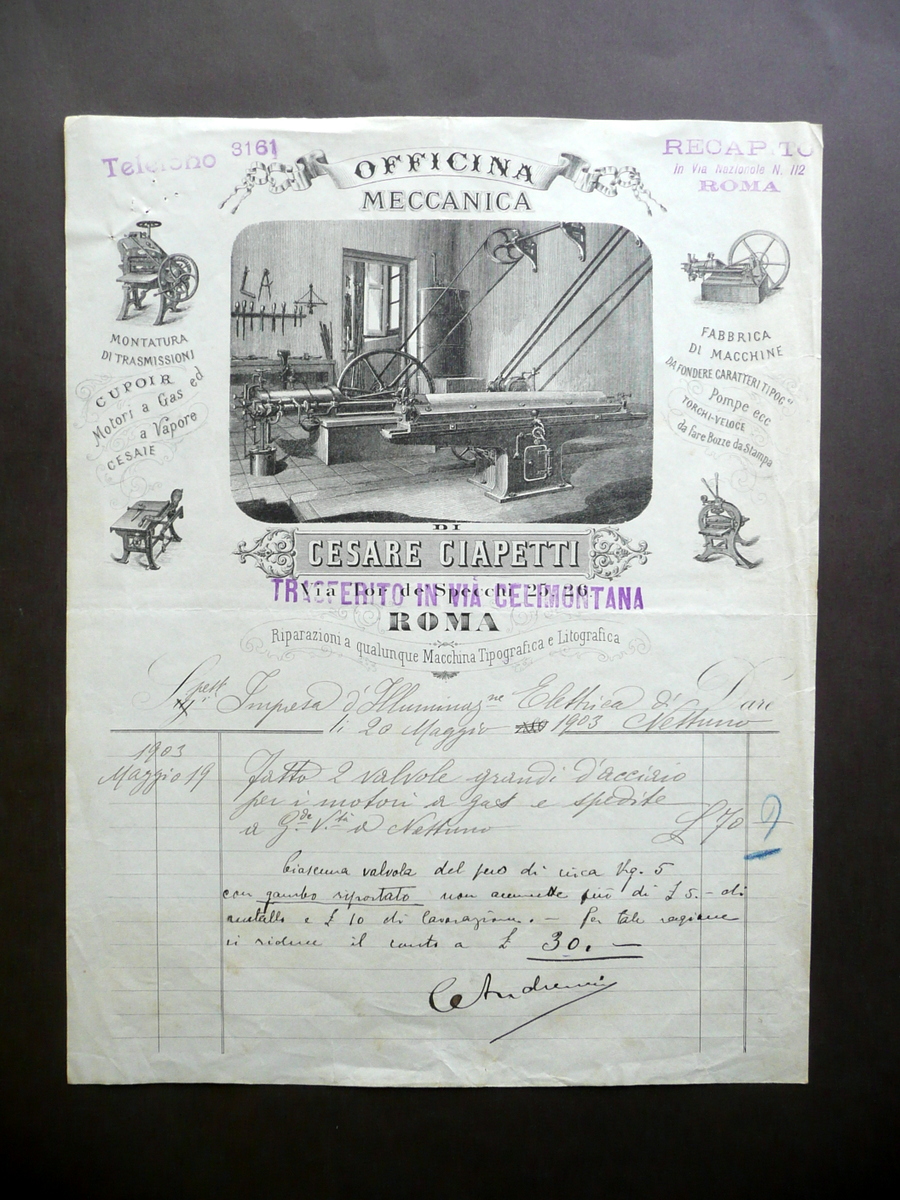 Telefono 3161
RECAPITO
in Via Nazionale N. 112
ROMA
OFFICINA
MECCANICA
MONTATURA
DI TRASMISSIONI
CUPOIR
Motori a Gas ed
a Vapore
CESAIE
FABBRICA
DI MACCHINE
DA FONDERE CARATTERI TIPOGci
Pompe ecc
TORCHI-VELOCE
da fare Bozze da Stampa
DI
CESARE CIAPETTI
Via Tor de Specchi 25, 26
TRASFERITO IN VIA CELIMONTANA
ROMA
Riparazioni a qualunque Macchina Tipografica e Litografica
Spett. Impresa d'Illuminazne Elettrica di Dare
li 20 Maggio 1903 Nettuno
1903
Maggio 19 Fatto 2 valvole grandi d'acciaio
per i motori a gas e spedite
a Gde Vtà a Nettuno £ 70
Ciascuna valvola del peso di circa Kg. 5
con gambo riportato non ammette più di £ 5.- di
metallo e £ 10 di lavorazione. - Per tale ragione
si riduce il conto a £ 30. —